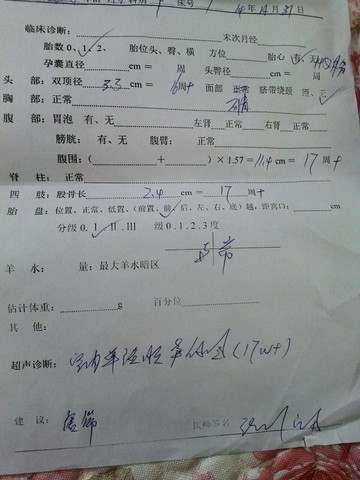 床号 14年12月31日
临床诊断: 末次月经
胎数 0、1、2、 胎位头、臀、横 方位 胎心 有、无
孕囊直径 cm= 周 头臀径 cm= 周
头 部: 双顶径 3.3 cm= 周+ 面部 正常 脐带绕颈 有、无
胸 部: 正常
腹 部: 胃泡 有、无 左肾 正常 右肾 正常
膀胱: 有、无 腹壁: 正常
腹围:( + )×1.57=11.4cm= 17 周+
脊 柱: 正常
四 肢: 股骨长 2.4 cm= 17 周+
胎 盘: 位置、正常、低置、(前置、前、后、左、右、底)越,距宫口: cm
分级 0. I. II . III 级 0. 1. 2. 3 度
羊 水: 量: 最大羊水暗区 正常
估计体重: g 百分位
其 他:
超声诊断: 宫内单活胎 (17w+)
建 议: 医师签名